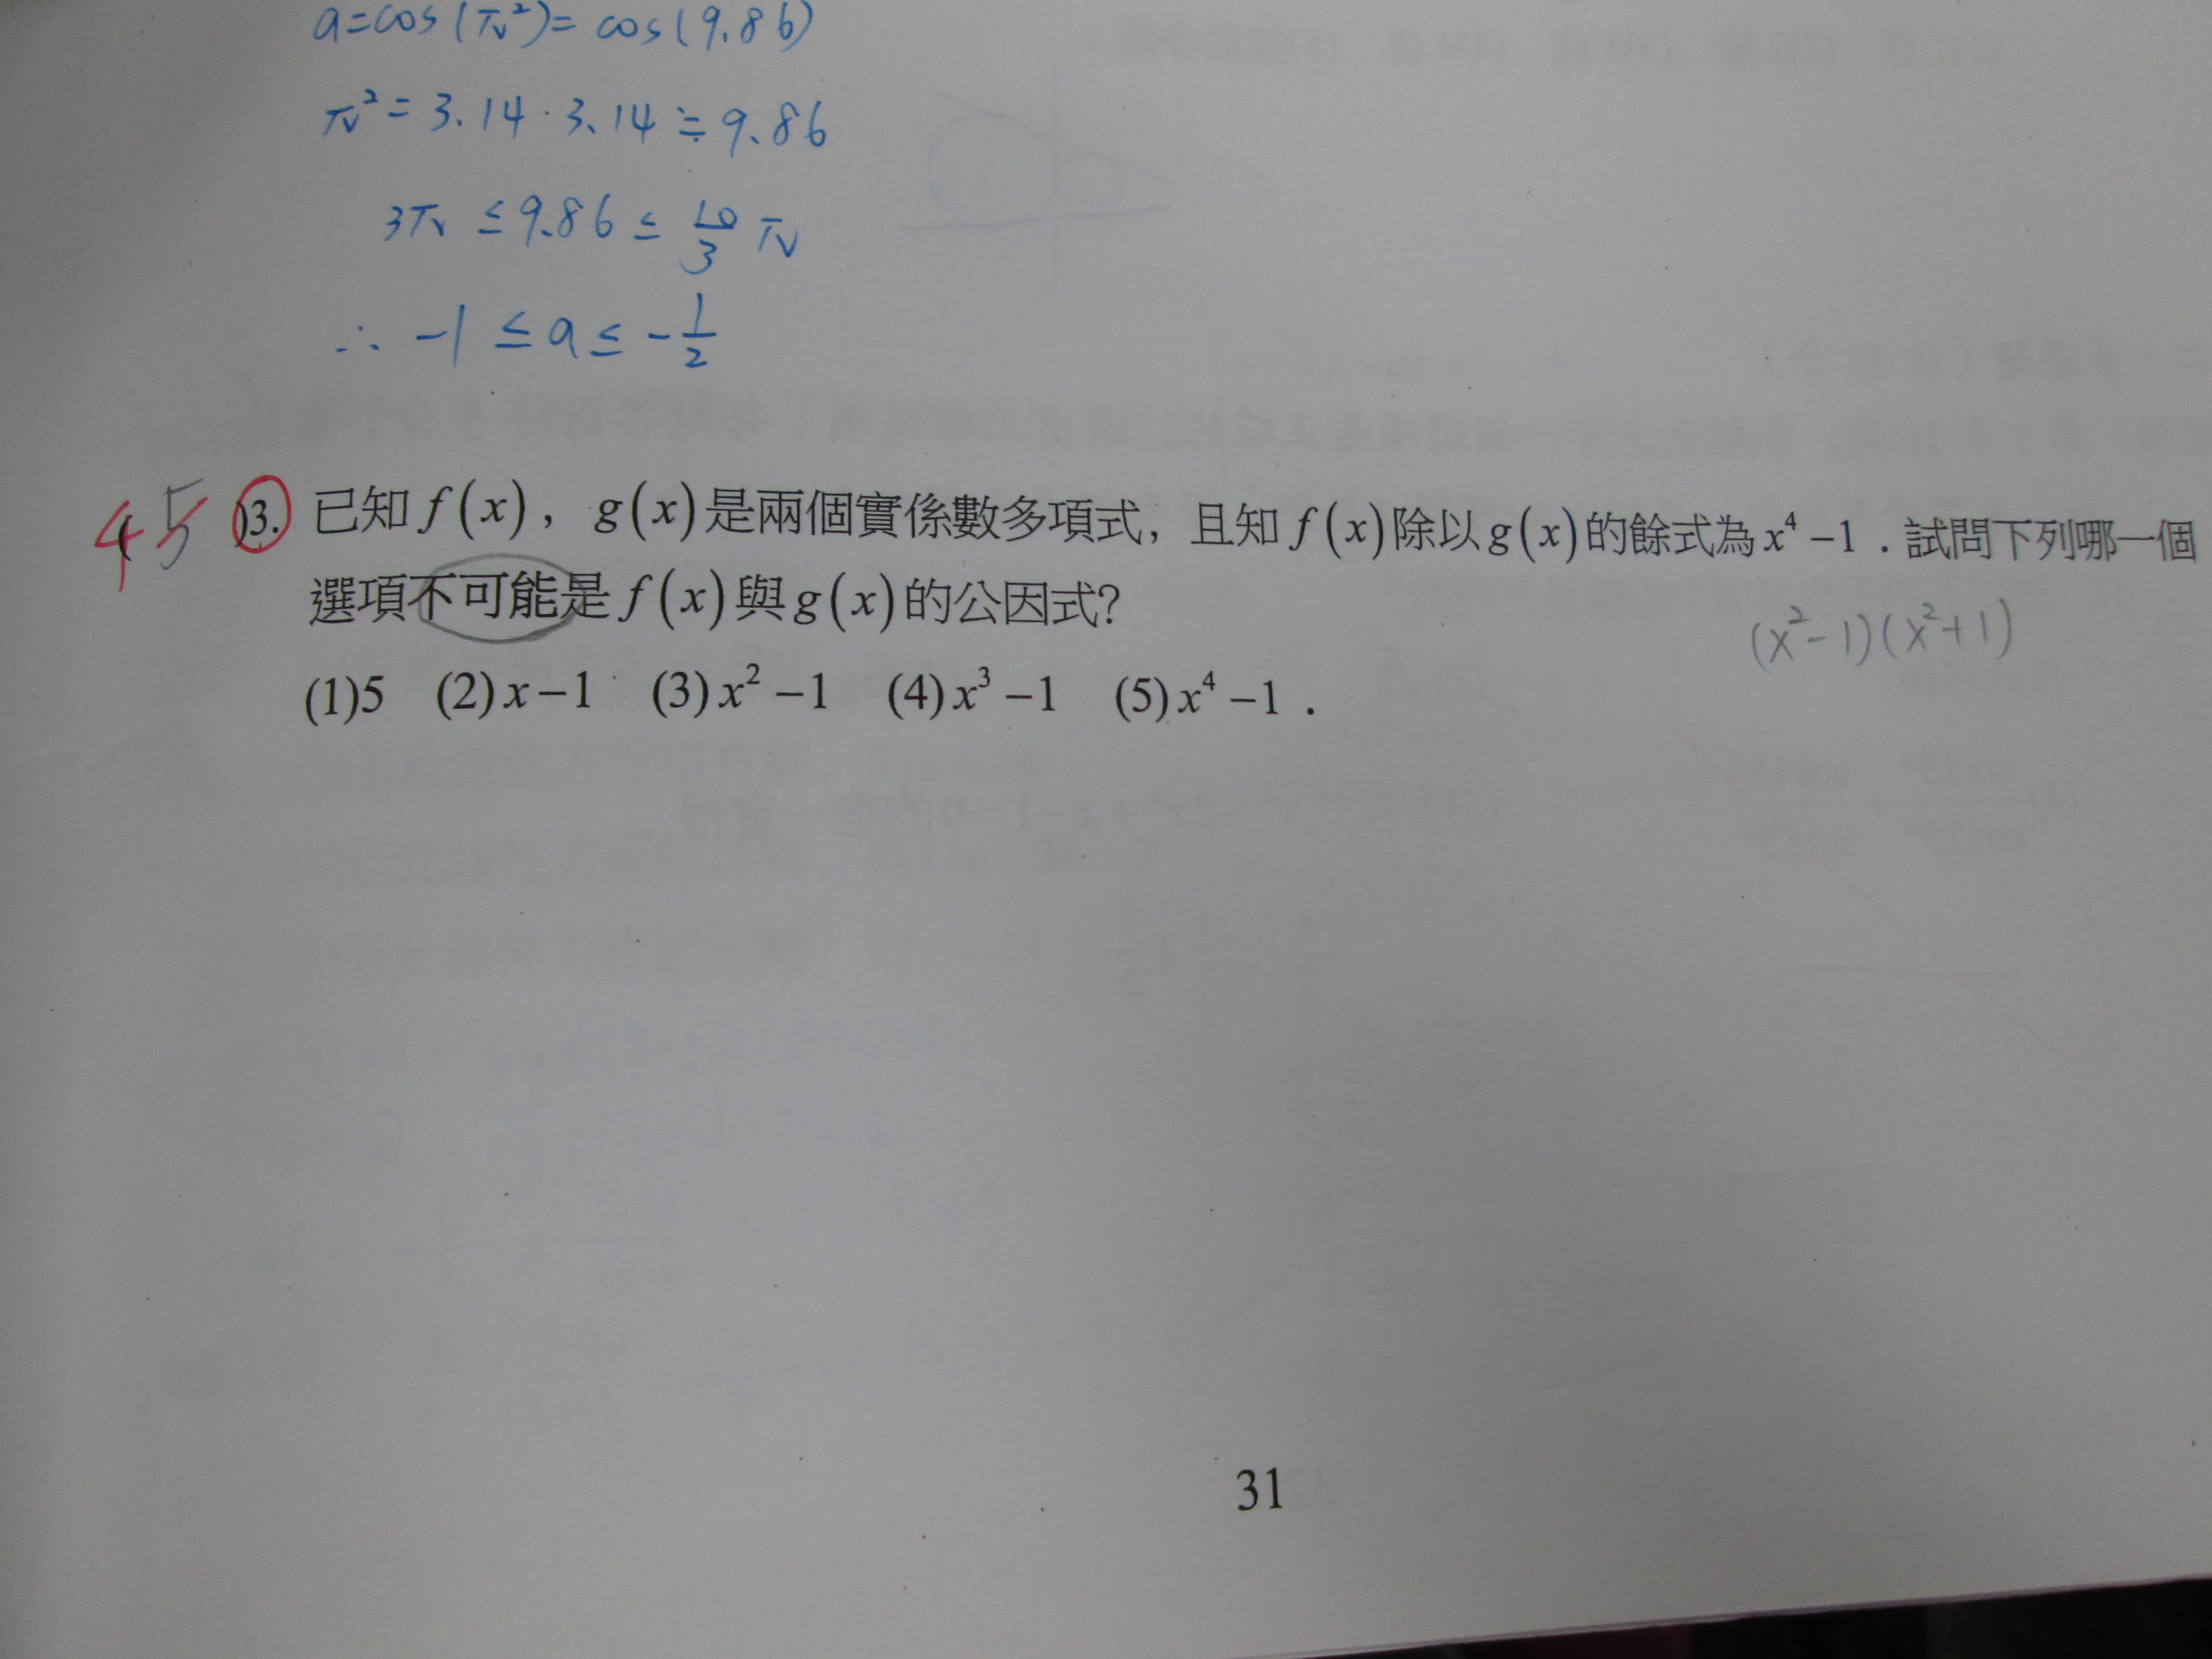 a=cos(π²)= cos(9.86)
π²= 3.14·3.14≒9.86
3π ≤9.86≤ 10/3 π
∴ -1 ≤a≤ -1/2
45 )3. 已知f(x)， g(x)是兩個實係數多項式，且知f(x)除以g(x)的餘式為x⁴-1．試問下列哪一個
選項不可能是f(x)與g(x)的公因式?
(x²-1)(x²+1)
(1)5 (2)x-1 (3)x²-1 (4)x³-1 (5)x⁴-1．
31